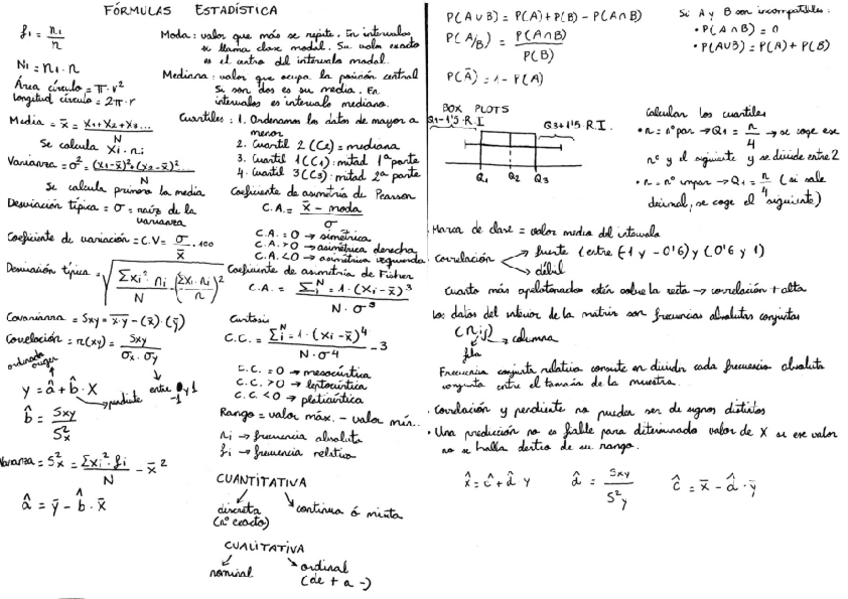 FÓRMULAS ESTADÍSTICA
fi = ni/n
Ni = ni · n
Área círculo = π · r²
Longitud círculo = 2π · r
Media = x̄ = x₁+x₂+x₃.../N
Se calcula xi · ni
Varianza = σ² = (x₁-x̄)²+(x₂-x̄)².../N
Se calcula primero la media
Desviación típica = σ = raíz de la varianza
Coeficiente de variación = C.V = σ/x̄ · 100
Desviación típica = √(Σxi² · ni/N - (Σxi · ni/n)²)
Covarianza = Sxy = x·y - (x̄) · (ȳ)
Correlación = r(xy) = Sxy/σx · σy
ordenada origen
entre -1 y 1
y = â + b̂ · X
pendiente
b̂ = Sxy/S²x
Varianza = S²x = Σxi² · fi/N - x̄²
â = ȳ - b̂ · x̄
Moda: valor que más se repite. En intervalos
se llama clase modal. Su valor exacto
es el centro del intervalo modal.
Mediana: valor que ocupa la posición central
Si son dos es su media. En
intervalos es intervalo mediano.
Cuartiles: 1. Ordenamos los datos de mayor a
menor
2. Cuartil 2 (C2) = mediana
3. Cuartil 1 (C1): mitad 1ª parte
4. Cuartil 3 (C3): mitad 2ª parte
Coeficiente de asimetría de Pearson
C.A. = x̄ - moda/σ
C.A. = 0 → simétrica
C.A. > 0 → asimétrica derecha
C.A. < 0 → asimétrica izquierda
Coeficiente de asimetría de Fisher
C.A. = Σᴺi=1 · (xi - x̄)³/N · σ³
Curtosis
C.C. = Σᴺi=1 · (xi - x̄)⁴/N · σ⁴ - 3
C.C. = 0 → mesocúrtica
C.C. > 0 → leptocúrtica
C.C. < 0 → platicúrtica
Rango = valor máx. - valor mín..
ni → frecuencia absoluta
fi → frecuencia relativa
CUANTITATIVA
discreta
(nº exacto)
continua ó mixta
CUALITATIVA
nominal
ordinal
(de + a -)
P(A∪B) = P(A) + P(B) - P(A∩B)
P(A/B) = P(A∩B)/P(B)
P(Ā) = 1 - P(A)
Si A y B son incompatibles:
• P(A∩B) = 0
• P(A∪B) = P(A) + P(B)
BOX PLOTS
Q1-1'5·R.I
Q3+1'5·R.I.
Q1 Q2 Q3
Calcular los cuartiles
• n = nº par → Q1 = n/4 → se coge ese
nº y el siguiente y se divide entre 2
• n = nº impar → Q1 = n/4 (si sale
decimal, se coge el siguiente)
Marca de clase = valor medio del intervalo
Correlación
fuerte (entre (-1 y -0'6) y (0'6 y 1)
débil
Cuanto más apelotonados estén sobre la recta → correlación + alta
Los datos del interior de la matriz son frecuencias absolutas conjuntas
(nij)
columna
fila
Frecuencia conjunta relativa consiste en dividir cada frecuencia absoluta
conjunta entre el tamaño de la muestra.
· Correlación y pendiente no pueden ser de signos distintos
· Una predicción no es fiable para determinado valor de X si ese valor
no se halla dentro de su rango.
x̂ = ĉ + d̂ y
d̂ = Sxy/S²y
ĉ = x̄ - d̂ · ȳ